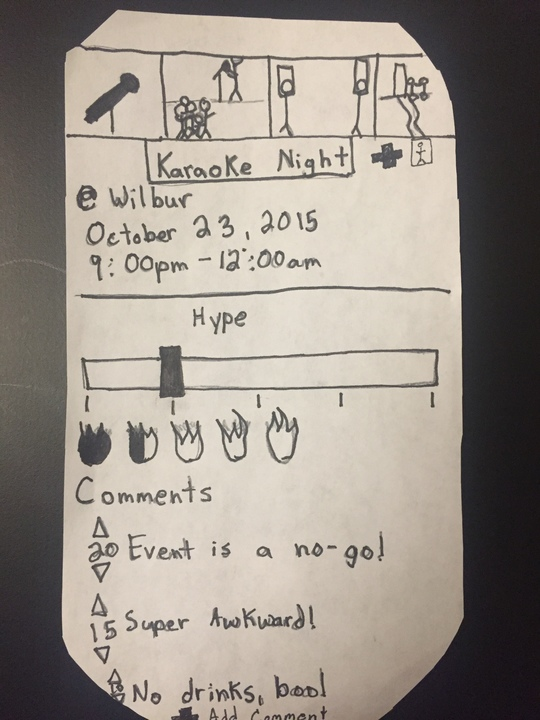 Karaoke Night
@ Wilbur
October 23, 2015
9:00pm - 12:00am
Hype
Comments
20 Event is a no-go!
15 Super Awkward!
No drinks, boo!
Add Comment